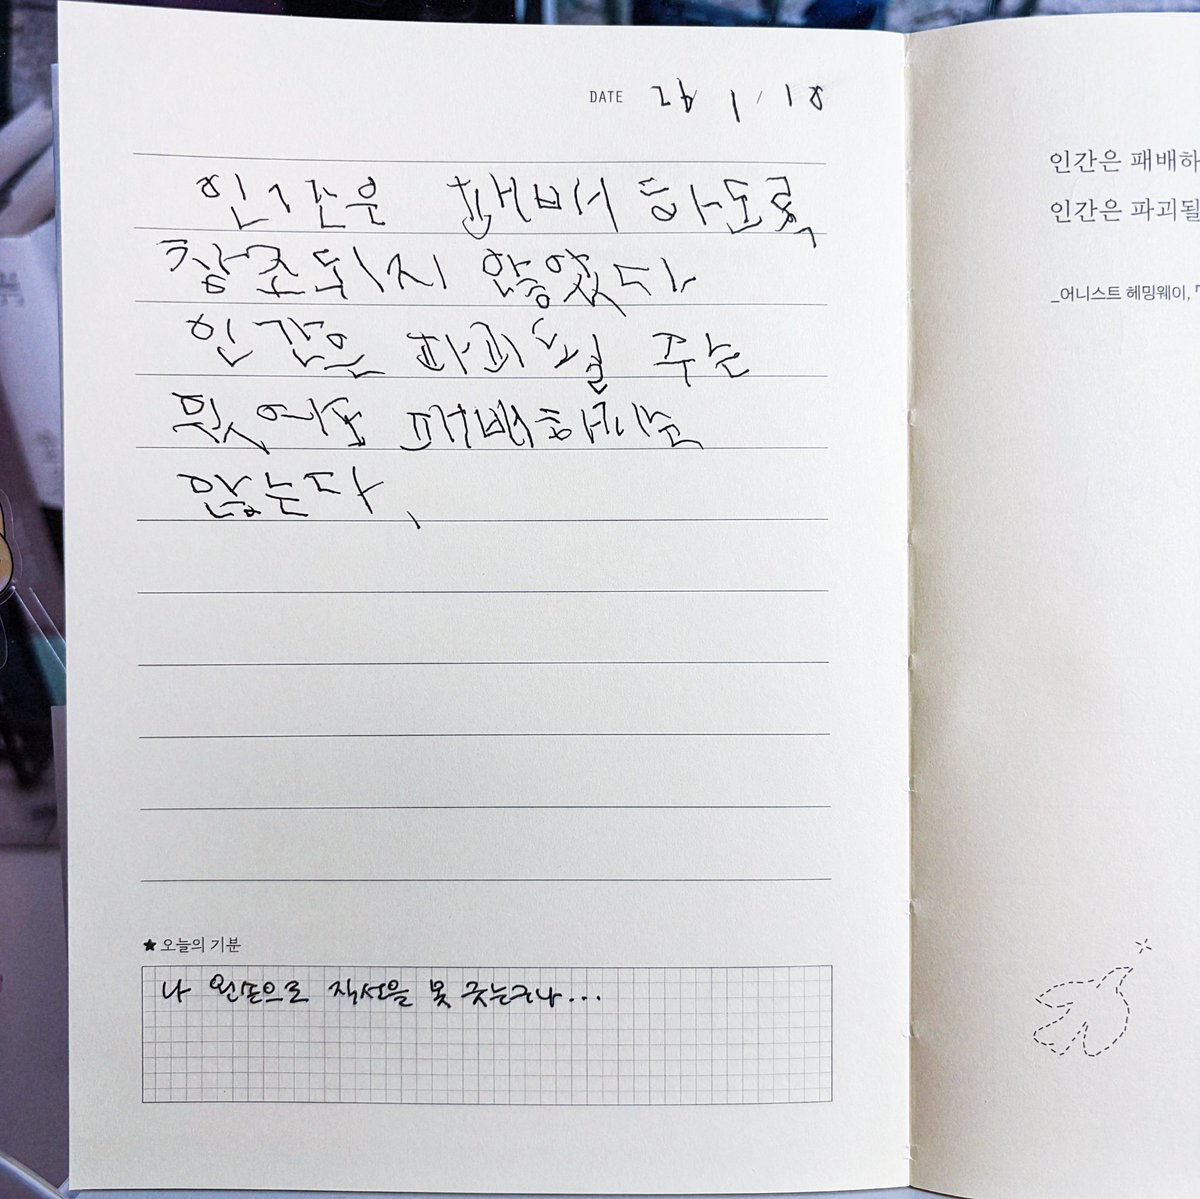 DATE 26 / 1 / 18
인간은 패배하도록
창조되지 않았다
인간은 파괴될 수는
있어도 패배하지는
않는다.
★ 오늘의 기분
나 왼손으로 직선을 못 긋는구나...
인간은 패배하
인간은 파괴될
_어니스트 헤밍웨이, 『